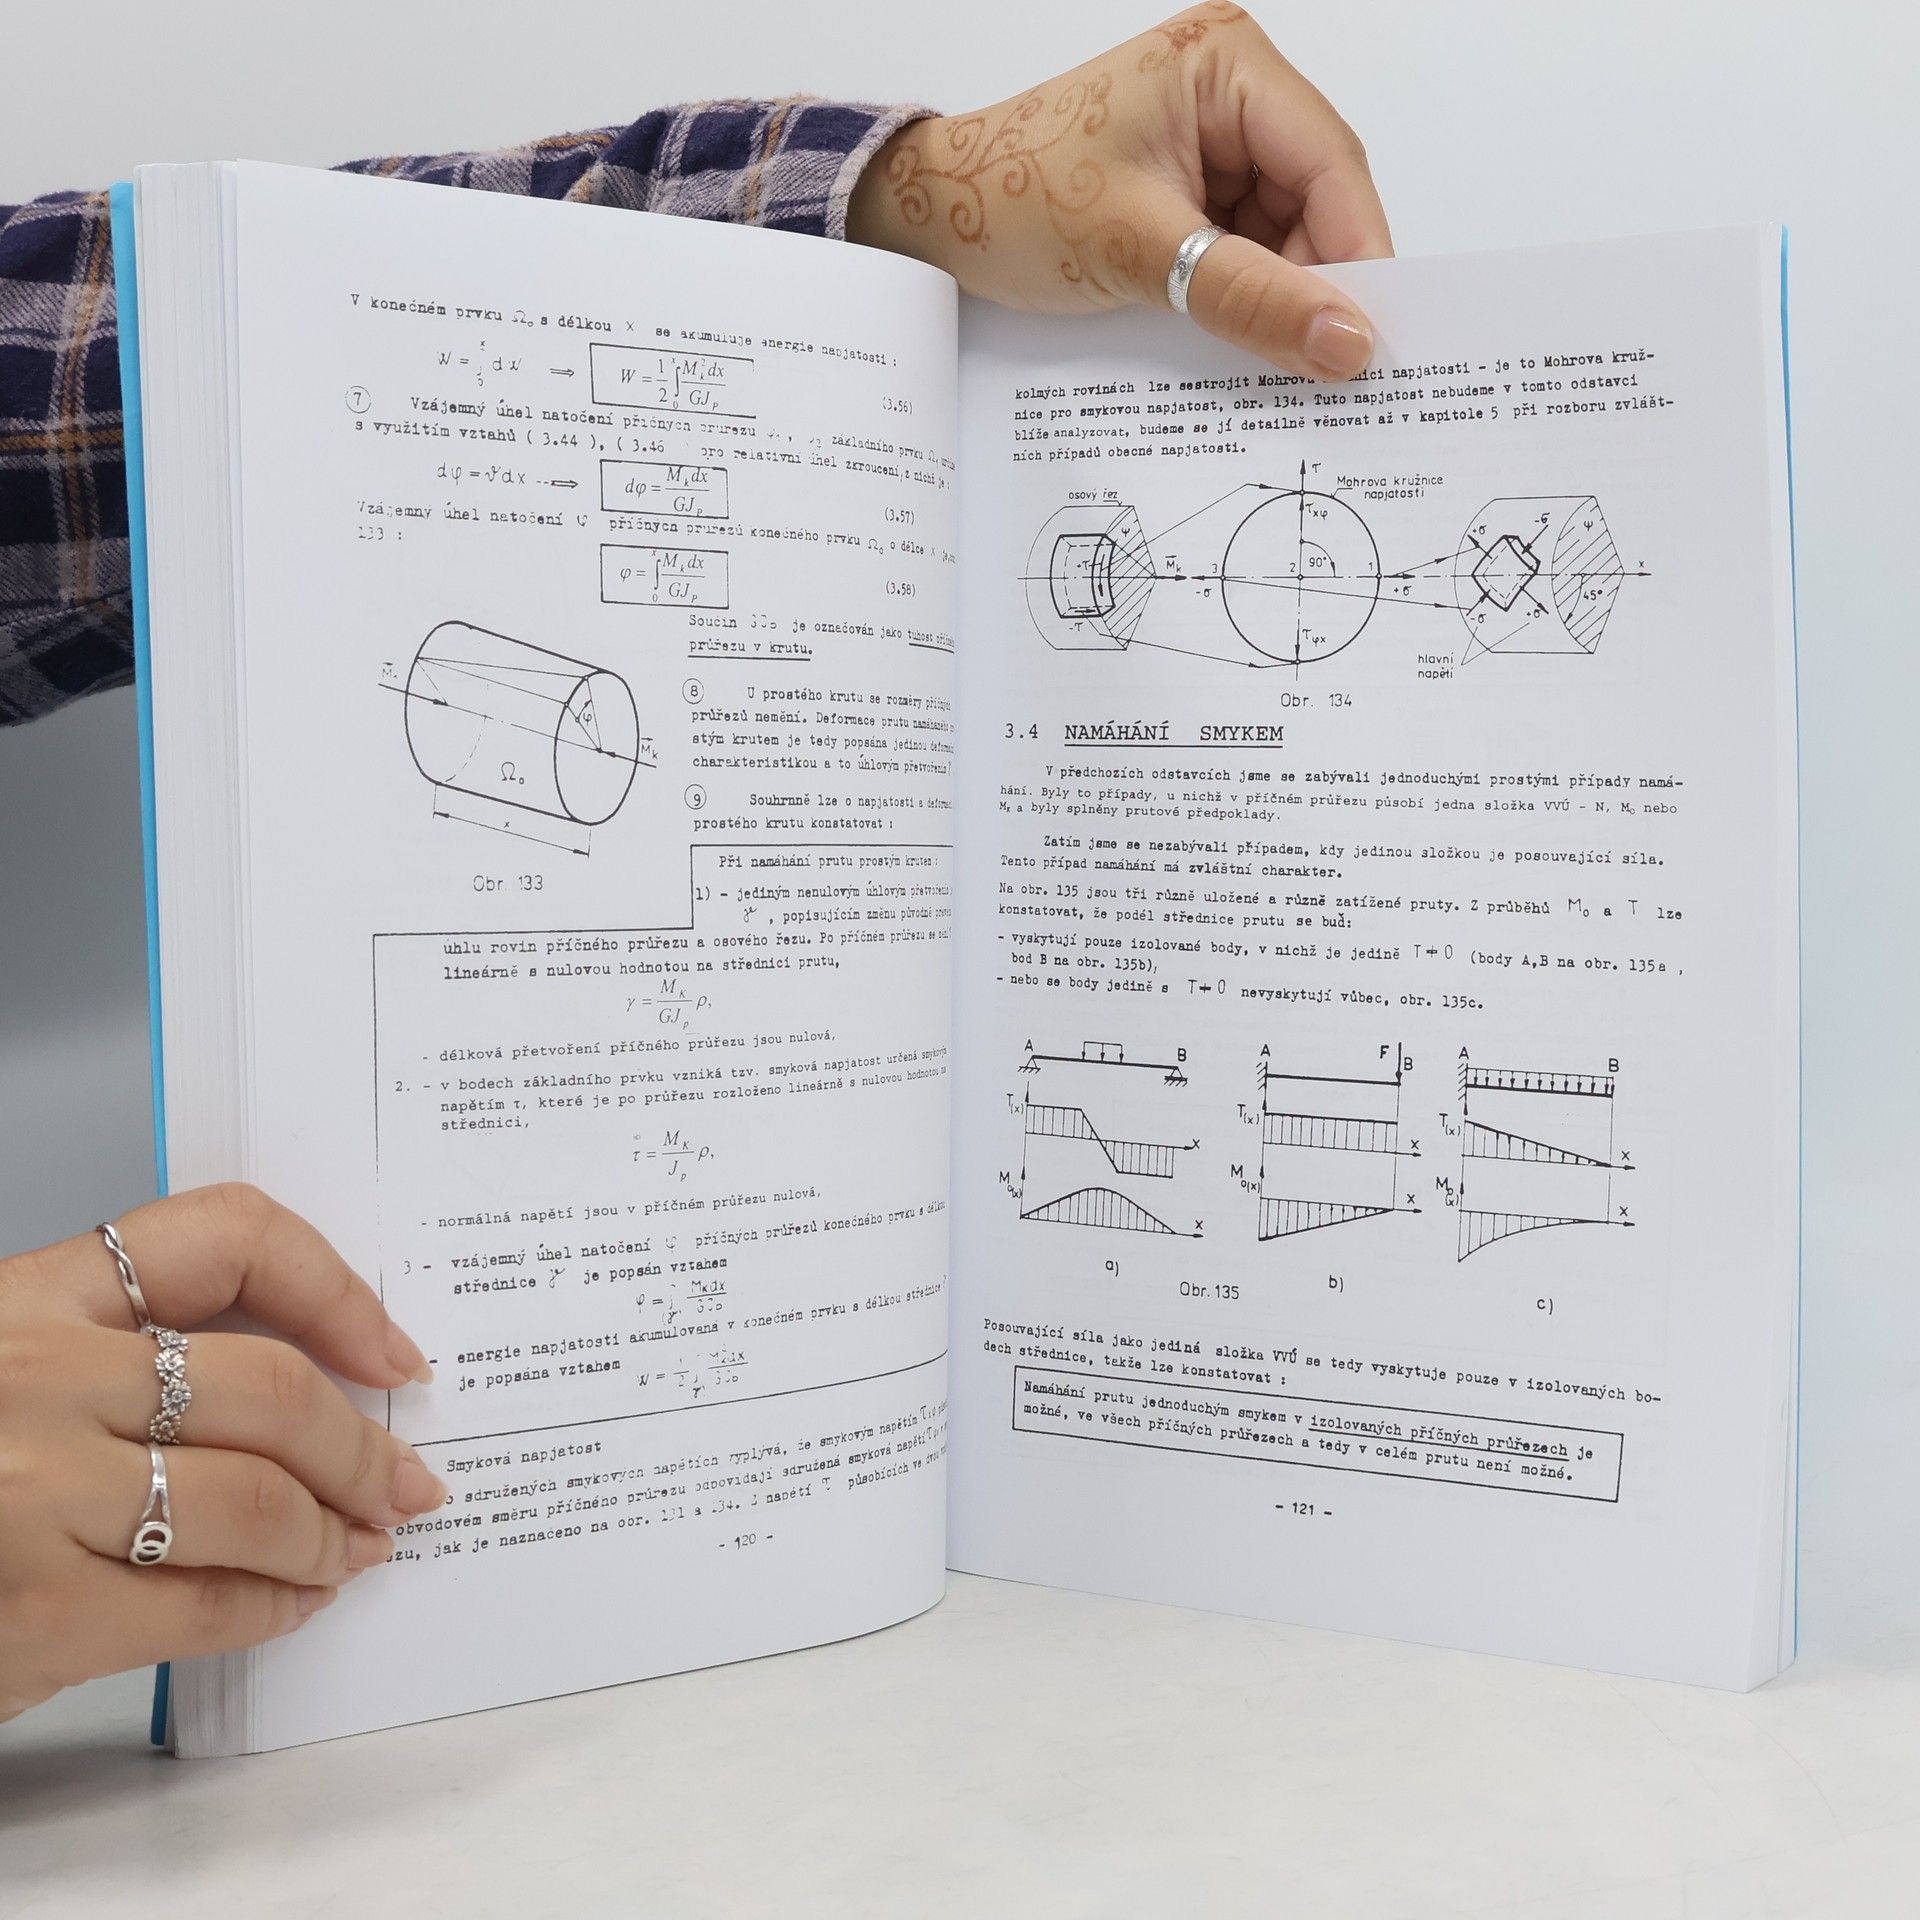 V konečném prvku Ω₀ s délkou x se akumuluje energie napjatosti :
W = ∫ dW ⟹ W = 1/2 ∫₀ˣ M_k² dx / GJ_P (3.56)
7 Vzájemný úhel natočení příčných průřezu základního prvku
s využitím vztahů ( 3.44 ), ( 3.46 pro relativní úhel zkroucení, z nichž je :
dφ = ϑdx ⟹ dφ = M_k dx / GJ_P (3.57)
Vzájemný úhel natočení φ příčných průřezů konečného prvku Ω₀ o délce x je
133 :
φ = ∫₀ˣ M_k dx / GJ_P (3.58)
Součin je označován jako tuhost
průřezu v krutu.
M̄ₖ
φ
M̄ₖ
Ω₀
x
Obr. 133
8 U prostého krutu se rozměry příčných
průřezů nemění. Deformace prutu namáhaného
stým krutem je tedy popsána jedinou
charakteristikou a to úhlovým přetvořením
9 Souhrnně lze o napjatosti a
prostého krutu konstatovat :
Při namáhání prutu prostým krutem :
1) - jediným nenulovým úhlovým
γ , popisujícím změnu původně
úhlu rovin příčného průřezu a osového řezu. Po příčném průřezu se mění
lineárně s nulovou hodnotou na střednici prutu,
γ = M_K / GJ_P ρ,
- délková přetvoření příčného průřezu jsou nulová,
2. - v bodech základního prvku vzniká tzv. smyková napjatost určená smykovým
napětím τ, které je po průřezu rozloženo lineárně s nulovou hodnotou na
střednici,
τ = M_K / J_P ρ,
- normálná napětí jsou v příčném průřezu nulová,
3 - vzájemný úhel natočení φ příčných průřezů konečného prvku s délkou
střednice γ je popsán vztahem
φ = ∫ M_K dx
- energie napjatosti akumulovaná v konečném prvku s délkou střednice
je popsána vztahem W = 1/2
Smyková napjatost
sdružených smykových napětích vyplývá, že smykovým napětím
obvodovém směru příčného průřezu odpovídají sdružená smyková napětí
zu, jak je naznačeno na obr. 131 a 134. Z napětí τ působících ve dvou
- 120 -
kolmých rovinách lze sestrojit Mohrovu napjatosti - je to Mohrova kruž-
nice pro smykovou napjatost, obr. 134. Tuto napjatost nebudeme v tomto odstavci
blíže analyzovat, budeme se jí detailně věnovat až v kapitole 5 při rozboru zvlášt-
ních případů obecné napjatosti.
osový řez
ψ
+τ
-τ
M̄ₖ
τ
Mohrova kružnice
napjatosti
τxφ
90°
3
2
1
-σ
+σ
τφx
-σ
ψ
-σ
+σ
45°
x
hlavní
napětí
Obr. 134
3.4 NAMÁHÁNÍ SMYKEM
V předchozích odstavcích jsme se zabývali jednoduchými prostými případy namá-
hání. Byly to případy, u nichž v příčném průřezu působí jedna složka VVÚ - N, M₀ nebo
Mₖ a byly splněny prutové předpoklady.
Zatím jsme se nezabývali případem, kdy jedinou složkou je posouvající síla.
Tento případ namáhání má zvláštní charakter.
Na obr. 135 jsou tři různě uložené a různě zatížené pruty. Z průběhů M₀ a T lze
konstatovat, že podél střednice prutu se buď:
- vyskytují pouze izolované body, v nichž je jedině T ≠ 0 (body A,B na obr. 135a ,
bod B na obr. 135b),
- nebo se body jedině s T ≠ 0 nevyskytují vůbec, obr. 135c.
A B
A F B
A B
T(x) x
T(x) x
T(x) x
M₀(x) x
M₀(x) x
M₀(x) x
a)
Obr. 135
b)
c)
Posouvající síla jako jediná složka VVÚ se tedy vyskytuje pouze v izolovaných bo-
dech střednice, takže lze konstatovat :
Namáhání prutu jednoduchým smykem v izolovaných příčných průřezech je
možné, ve všech příčných průřezech a tedy v celém prutu není možné.
- 121 -